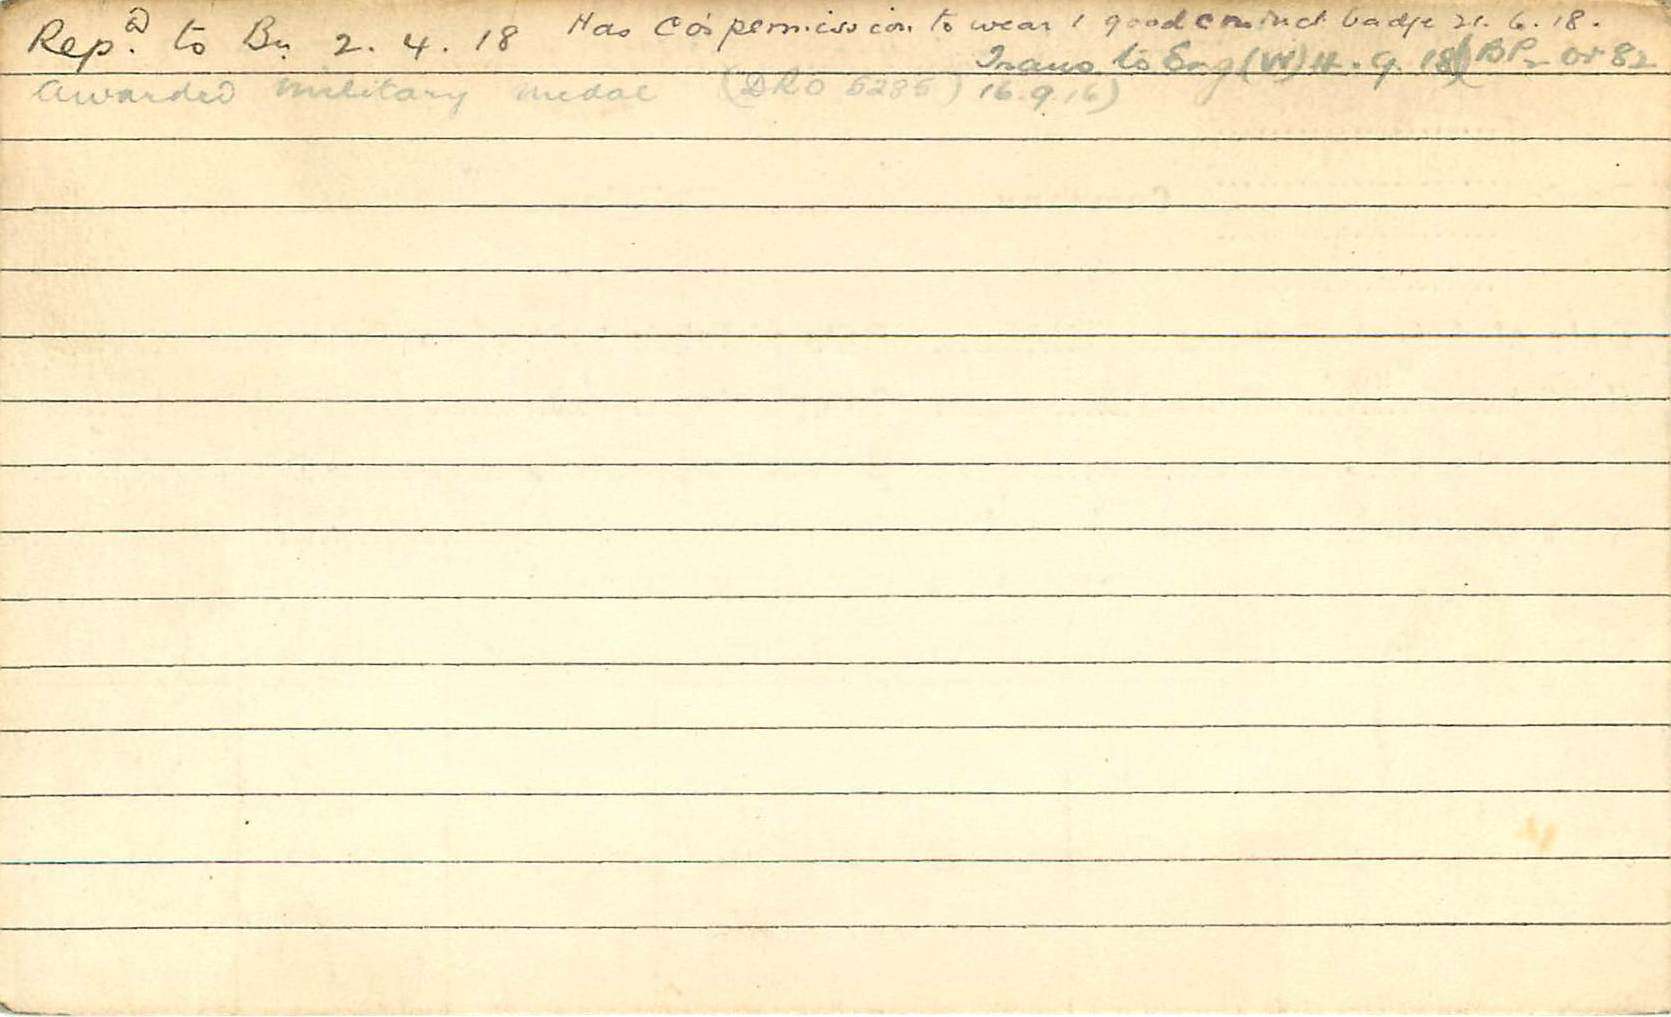 Repd. to Bn. 2. 4. 18 Has Co's permission to wear 1 good conduct badge 21. 6. 18.
Trans to Eng (W) 4. 9. 18 (BP2 Or 82
Awarded Military Medal (DRO 5285) 16.9.16)